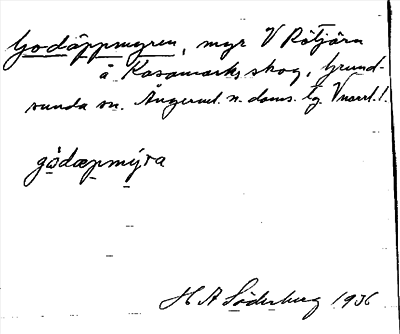 Godäppmyren, myr V Rötjärn
å Kasamarks skog, Grund-
sunda sn. Ångerml. n. doms. tg Vnorrl. l.
gödæpmýra
H A Söderberg 1936